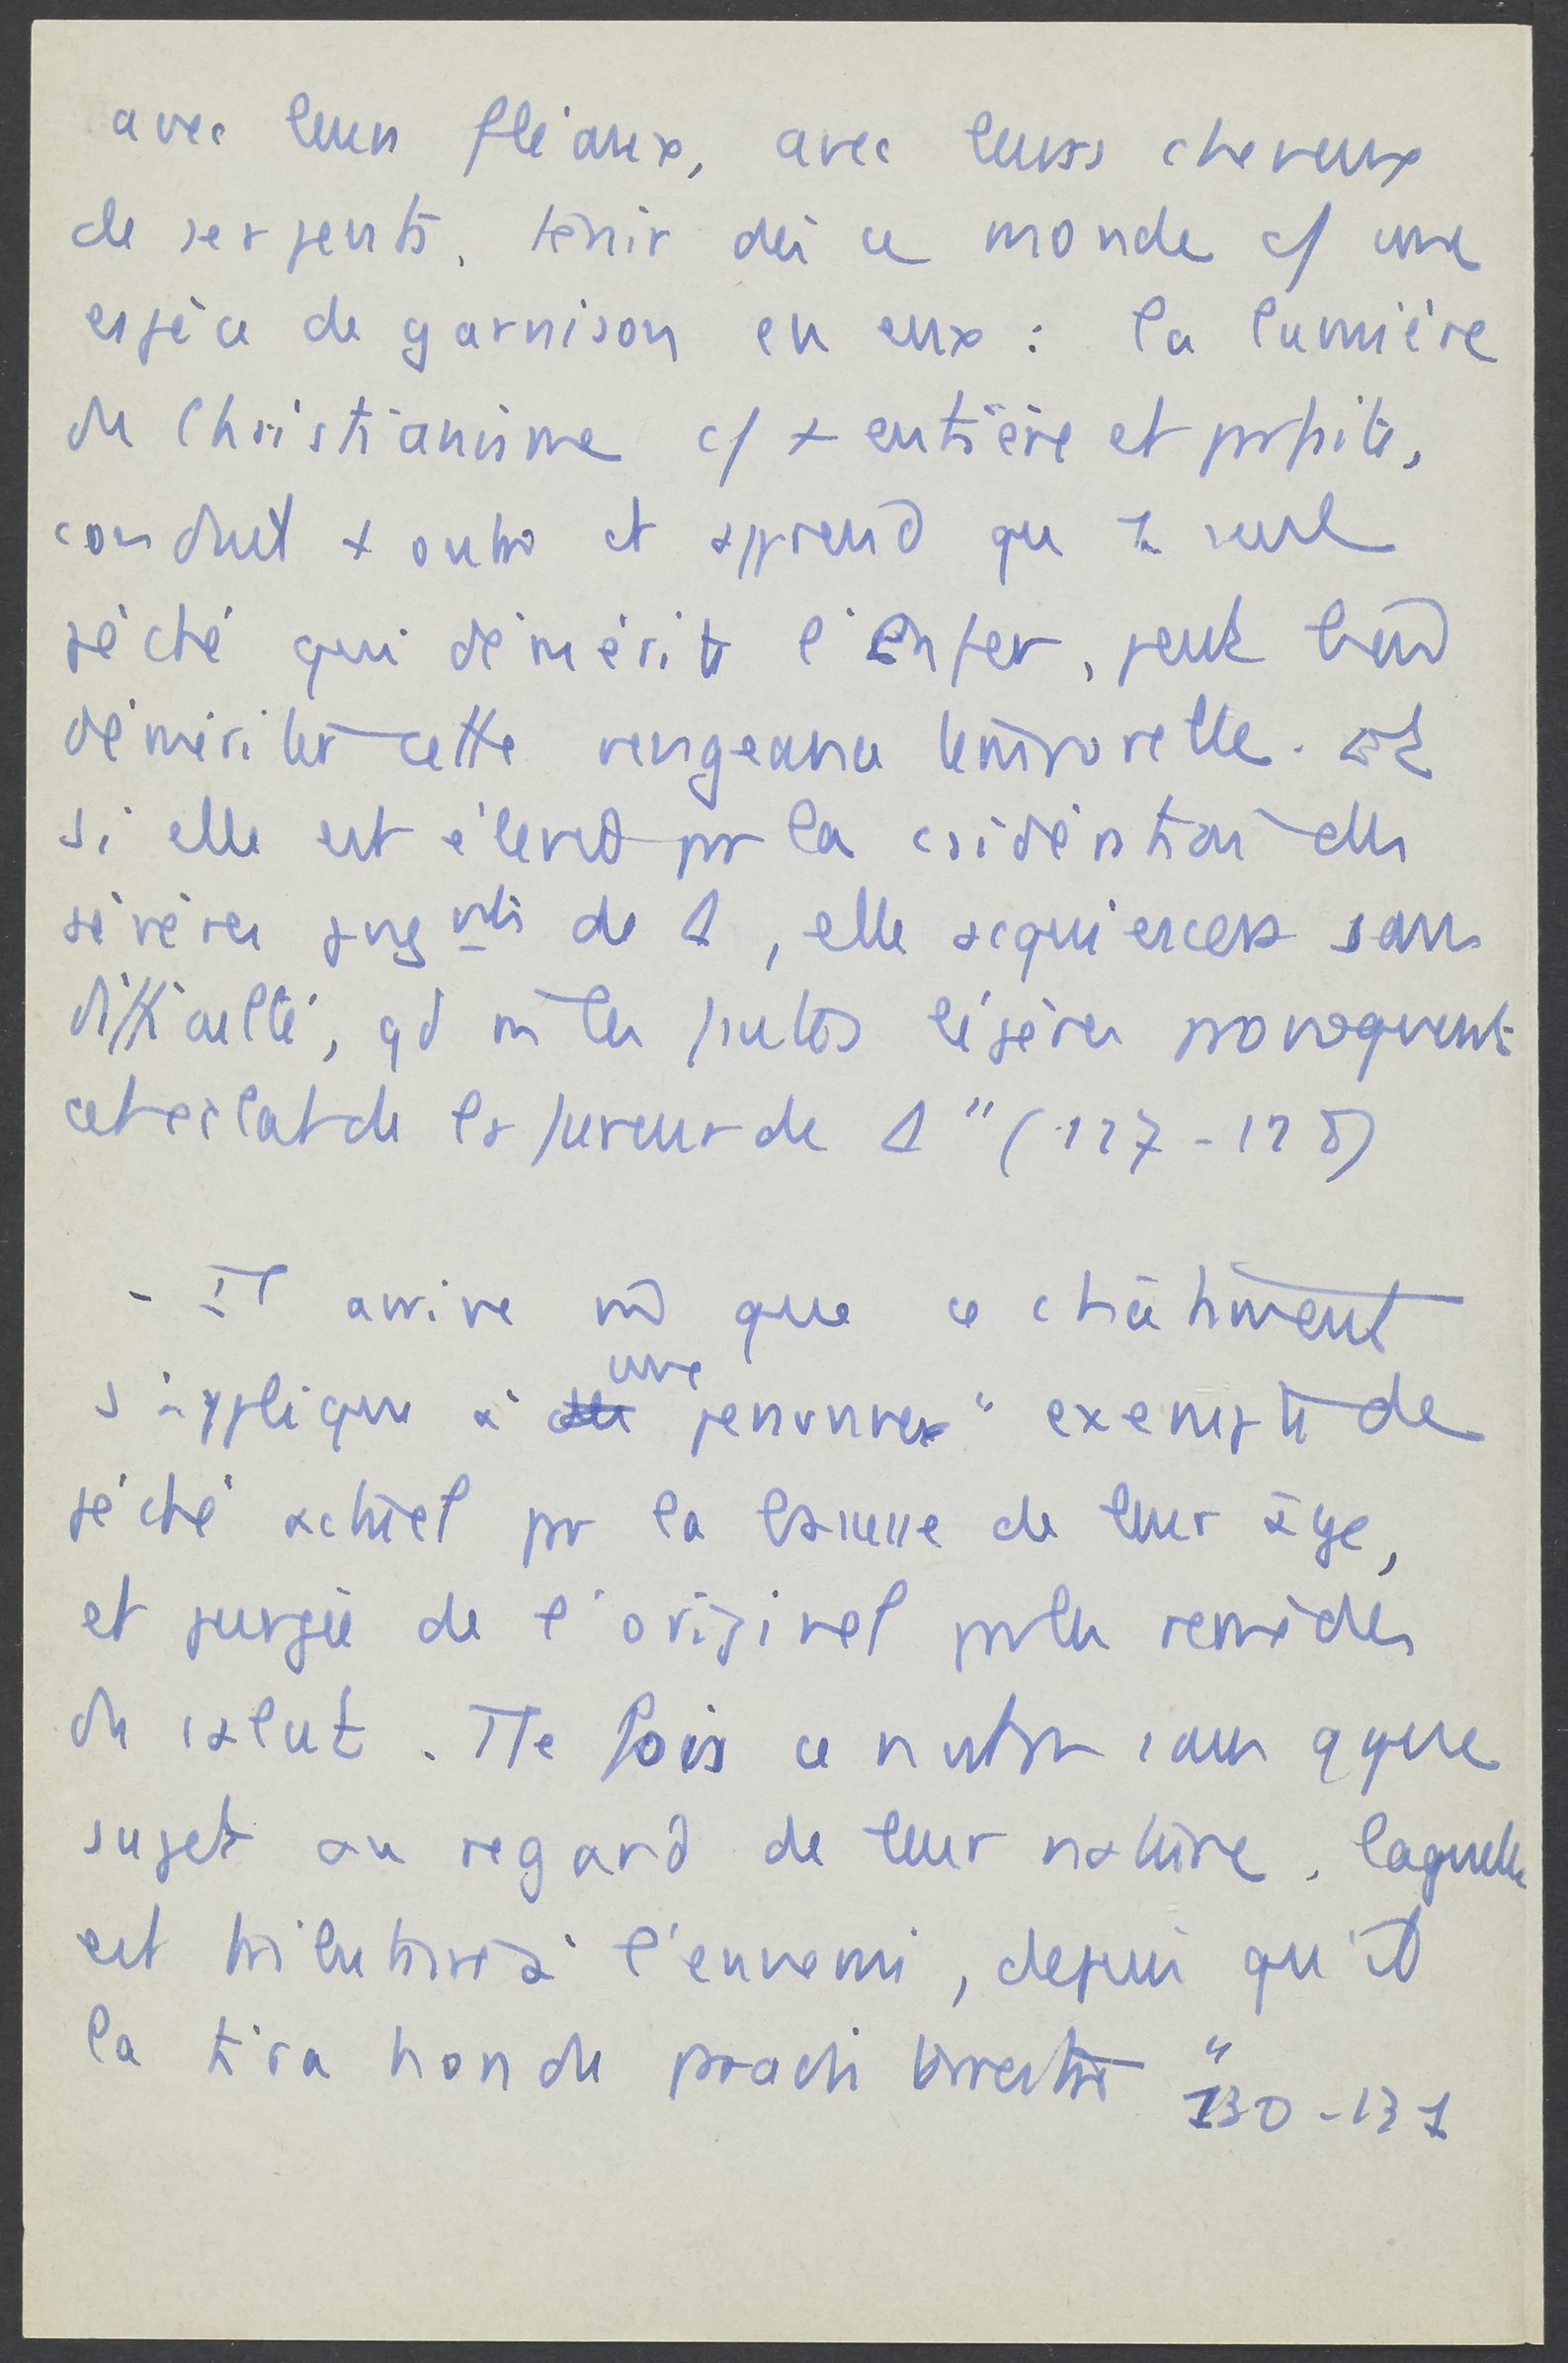 avec leurs fléaux, avec leurs cheveux
de serpents, tenir ds ce monde c/ une
espèce de garnison en eux : la lumière
du Christianisme c/ + entière et parfaite,
conduit + outre et apprend que 1 seul
péché qui démérite l'Enfer, peut bien
démériter cette vengeance temporelle. Et
si elle est élevée par la considération des
sévères jugmts de Δ, elle acquiescera sans
difficulté, qd m les fautes légères provoquent
cet éclat de la fureur de Δ" (127-128)
- Il arrive m que ce châtiment
s'applique à une personne "exempte de
péché actuel par la bassesse de leur âge,
et purgée de l'originel par les remèdes
du salut. Tte fois ce n'est sans qque
sujet au regard de leur nature, laquelle
est tributaire à l'ennemi, depuis qu'il
la tira hon du paradis terrestre"
130-131